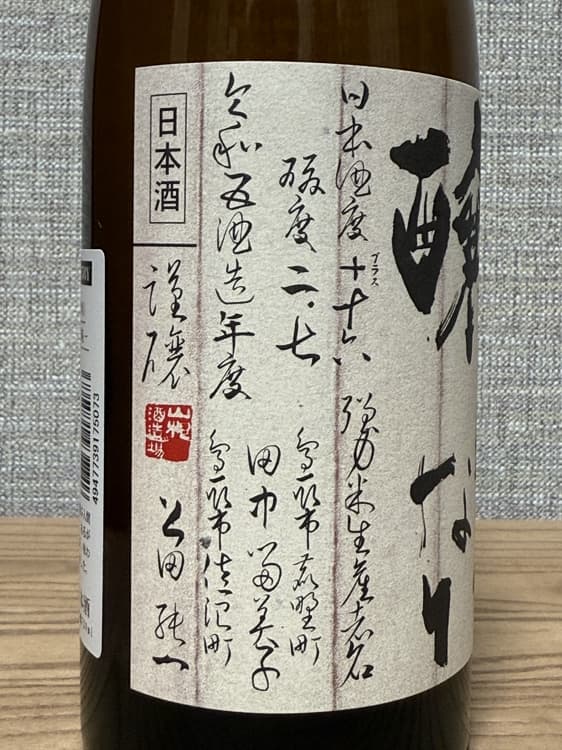 醸
なり
日本酒度
プラス
十十六
強力米生産者名
酸度 二.七
鳥取市鹿野町
田中
令和五酒造年度
鳥取市佐治町
日本酒
謹醸
山根
酒造場
4947739175073